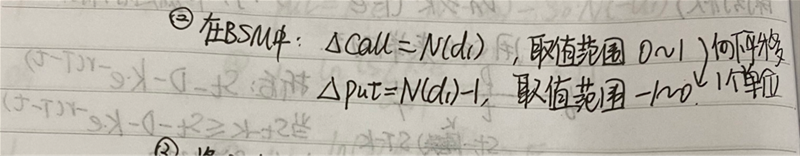 ② 在BSM中: Δcall=N(d₁), 取值范围 0~1
Δput=N(d₁)-1, 取值范围 -1~0
向下移
1个单位
③